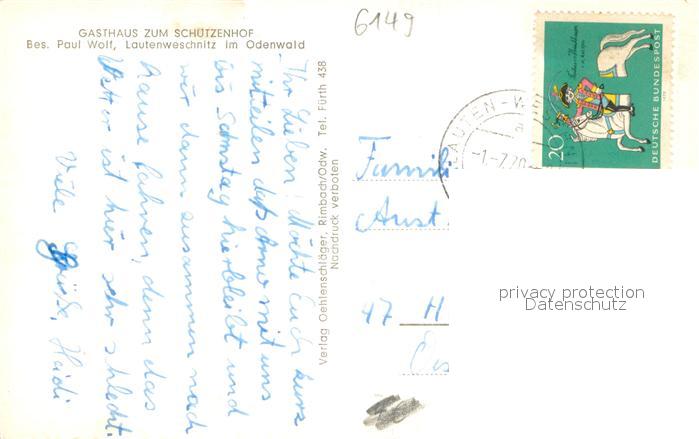 GASTHAUS ZUM SCHÜTZENHOF
Bes. Paul Wolf, Lautenweschnitz im Odenwald
6149
Ihr Lieben! Möchte Euch kurz
mitteilen daß Arno mit uns
bis Samstag hierbleibt und
wir dann zusammen nach
hause fahren, denn das
Wetter ist hier sehr schlecht.
Viele Grüße, Heidi
Verlag Oehlenschläger, Rimbach/Odw. Tel. Fürth 438
Nachdruck verboten
LAUTEN-W
-1.-7.70
20
DEUTSCHE BUNDESPOST
Famili
47 H
privacy protection
Datenschutz